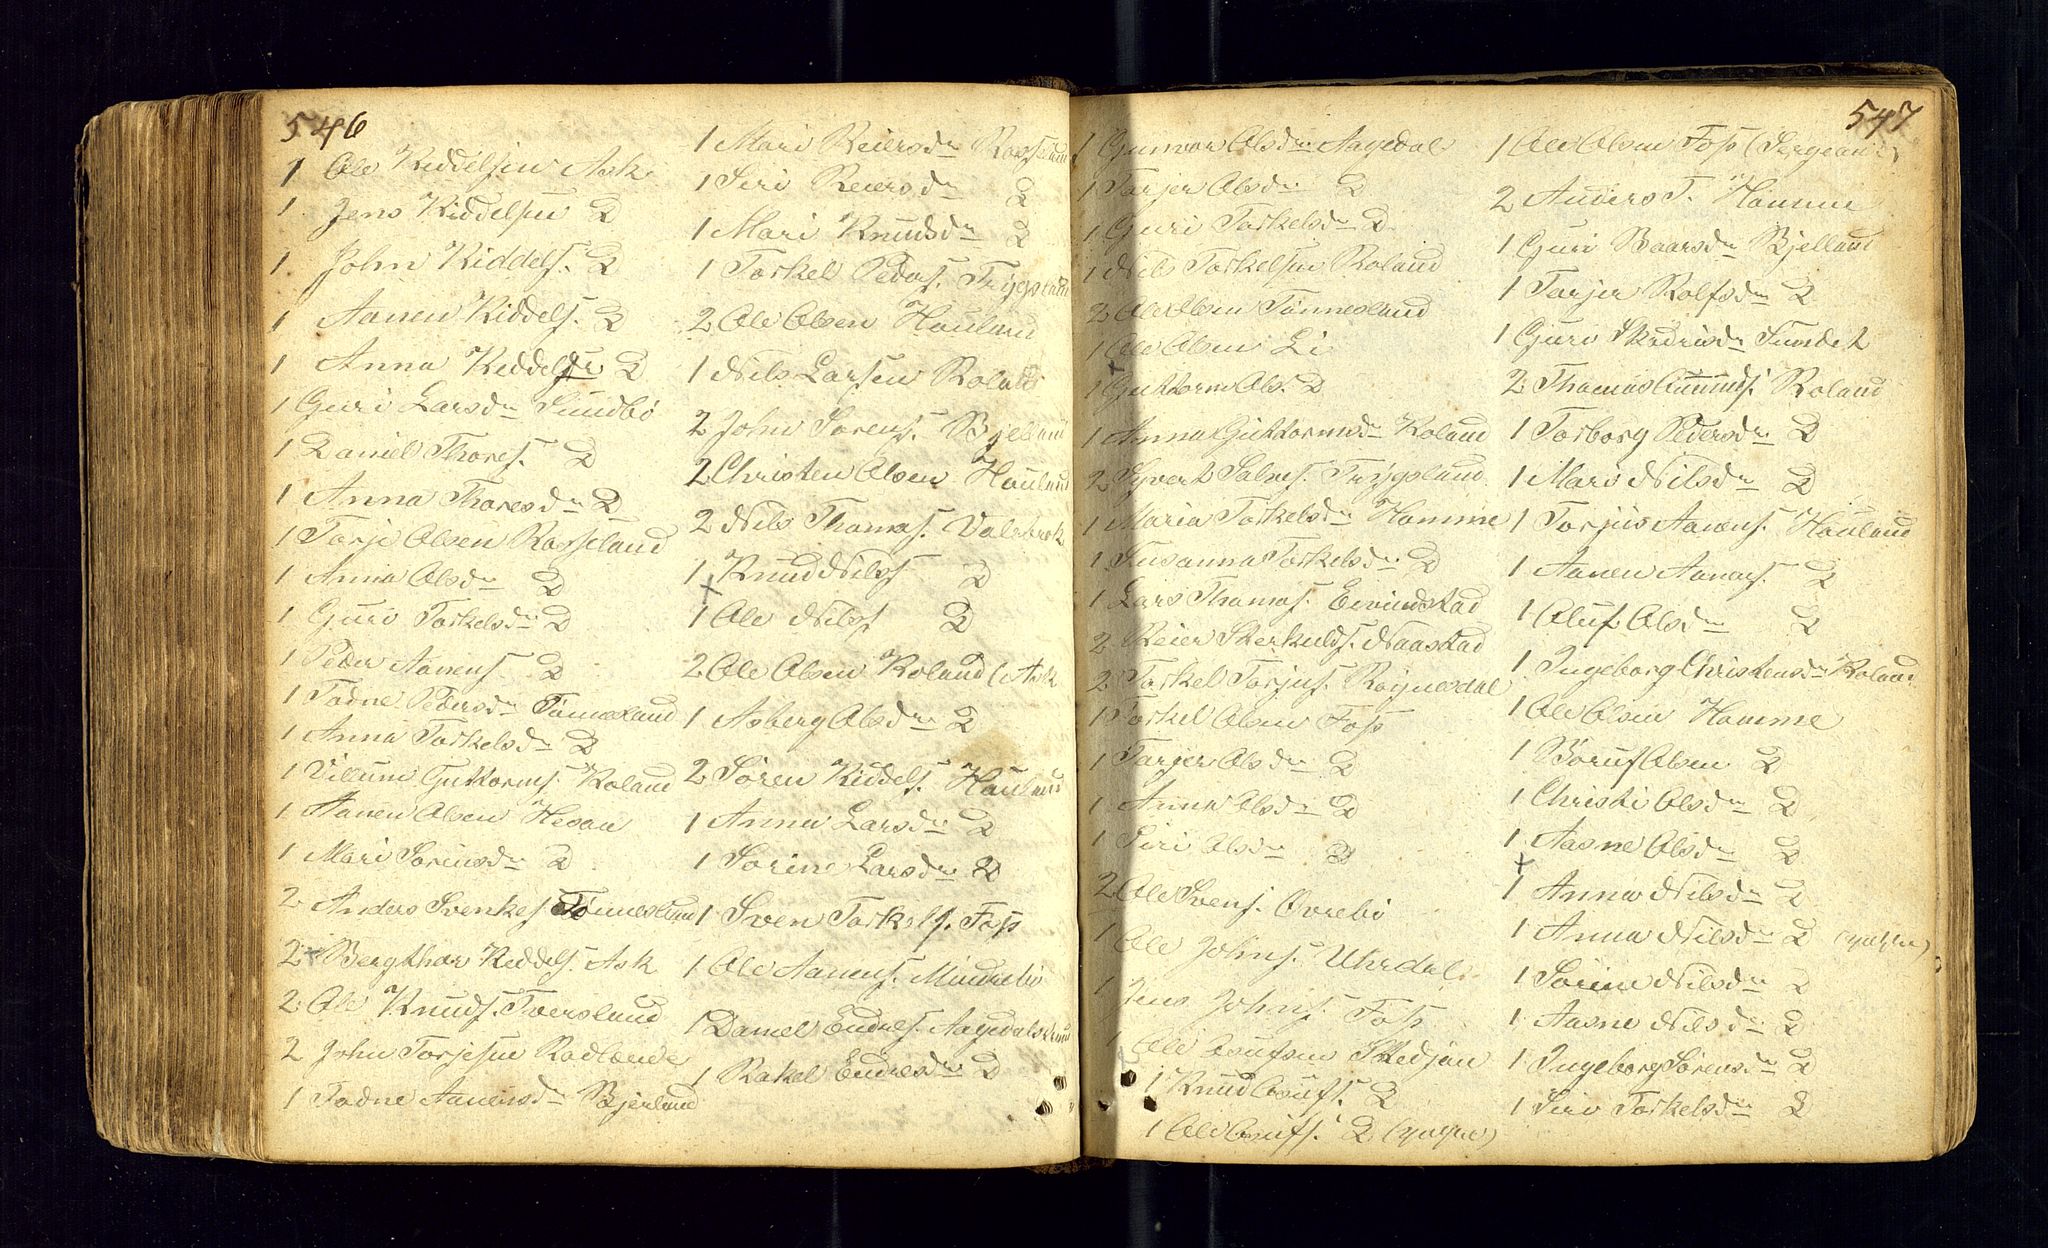 546
1 Ole Kiddelsen Ask
1 Jens Kiddelsen D
1 John Kiddels. D
1 Aanen Kiddels. D
1 Anna Kiddelsdr D
1 Guri Larsdr Sundbö
1 Daniel Thores. D
1 Anna Thoresdr D
1 Tarje Olsen Rosseland
1 Anna Olsdr D
1 Guro Torkelsdr D
1 Peder Aanens. D
1 Todne Pedersdr Tönnesland
1 Anna Torkelsdr D
1 Villum Guttorms. Roland
1 Aanen Olsen Hesaa
1 Mari Sörensdr D
2 Anders Svenkes. Tönnesland
2 Bergthor Kiddels. Ask
2 Ole Knuds. Tversland
2 John Torjesen
1 Todne Aanensdr Bjerland
1 Mari Reiersdr Rosseland
1 Siri Reiersdr D
1 Mari Knudsdr D
1 Torkel Peders. Trygsland
2 Ole Olsen Hauland
1 Nils Larsen Roland
2 John Sörens. Bjelland
2 Christen Olsen Hauland
2 Nils Thomas.
1 Knud Nils. D
1 Ole Nils. D
2 Ole Olsen Roland (Ask
1 Asberg Olsdr D
2 Sören Kiddels. Hauland
1 Anna Larsdr D
1 Sörine Larsdr D
1 Sven Torkels. Foss
1 Ole Aanens. Mindrebö
1 Daniel Endres. Aagedalstrand
1 Rakel Endresdr D
547
1 Gunvor Olsdr Aagedal
1 Tarjer Olsdr D
1 Guri Torkelsdr D
1 Nils Torkelsen Roland
2 Ole Olsen Tönnesland
1 Ole Olsen Li
1 Guttorm Ols. D
1 Anna Guttormsdr Roland
2 Syvert Salves. Trygsland
1 Maria Torkelsdr Homme
1 Susanna Torkelsdr D
1 Lars Thomas. Eivindstad
2 Reier Sterkulds. Naastad
2 Torkel Torjus. Röinesdal
1 Torkel Olsen Foss
1 Tarjer Olsdr D
1 Anna Olsdr D
1 Siri Olsdr D
2 Ole Svens. Övrebö
1 Ole Johns. Uhrdal
1 Jens Johns. Foss
1 Ole Osufsen
1 Knud Osufs. D
1 Ole Osufs. D (yngre)
1 Ole Olsen Foss (Sergeant)
2 Anders T. Homme
1 Guri Baarsdr Bjelland
1 Tarjer Rolfsdr D
1 Guro Sundet
2 Thomas Amunds. Roland
1 Torborg Pedersdr D
1 Mari Nilsdr D
1 Torjus Aanens. Hauland
1 Aanen Aanens. D
1 Oluf Olsdr D
1 Ingeborg Christensdr Roland
1 Ole Olsen Homme
1 Böruf Olsen D
1 Christi Olsdr D
1 Aasne Olsdr D
1 Anna Nilsdr D
1 Anna Nilsdr D (yngre)
1 Sörine Nilsdr D
1 Aasne Nilsdr D
1 Ingeborg Sörensdr D
1 Siri Torkelsdr D